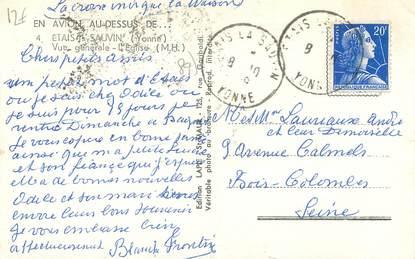 La croix indique la maison
EN AVION AU-DESSUS DE...
4. ETAIS-la-SAUVIN (Yonne)
Vue générale - L'Église (M.H.)
Chers petits amis
un petit mot d'Etais
ou je suis chez Odile ou
je suis pour 15 jours je
rentre Dimanche a
Je vous espère en bonne santé
ainsi que ma petite
et son fiancé que j'espère
de bonnes nouvelles
Odile et son mari
envoie leur bon souvenir
Je vous embrasse bien
affectueusement Blanche
Edition LAPIE
Véritable photo au bromure - Reprod. interdite
ETAIS LA SAUVIN
YONNE
ETAIS LA SAUVIN
YONNE
20F
Mr et Mme Laureaux André
et leur Demoiselle
9 Avenue Calmels
Bois-Colombes
Seine